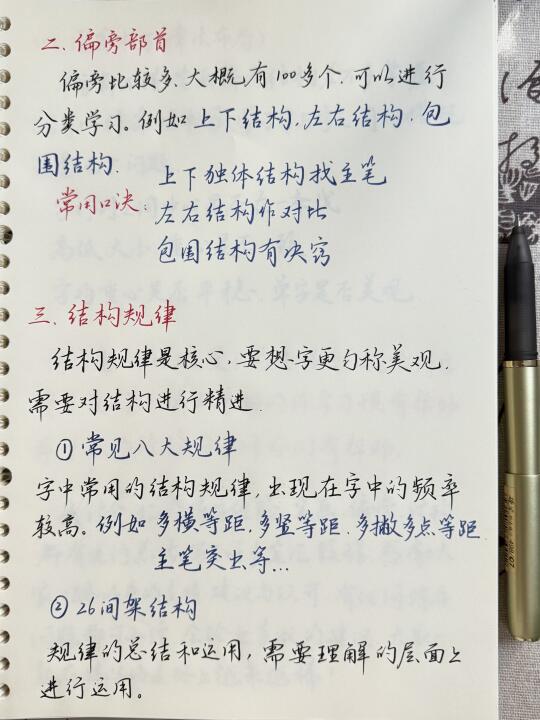 二.偏旁部首
偏旁比较多.大概有100多个.可以进行
分类学习。例如上下结构.左右结构.包
围结构.
常用口诀
上下独体结构找主笔
左右结构作对比
包围结构有决窍
三.结构规律
结构规律是核心.要想字更匀称美观.
需要对结构进行精进.
①常见八大规律
字中常用的结构规律,出现在字中的频率
较高。例如多横等距.多竖等距.多撇多点等距
主笔突出等...
②26间架结构
规律的总结和运用,需要理解的层面上
进行运用。